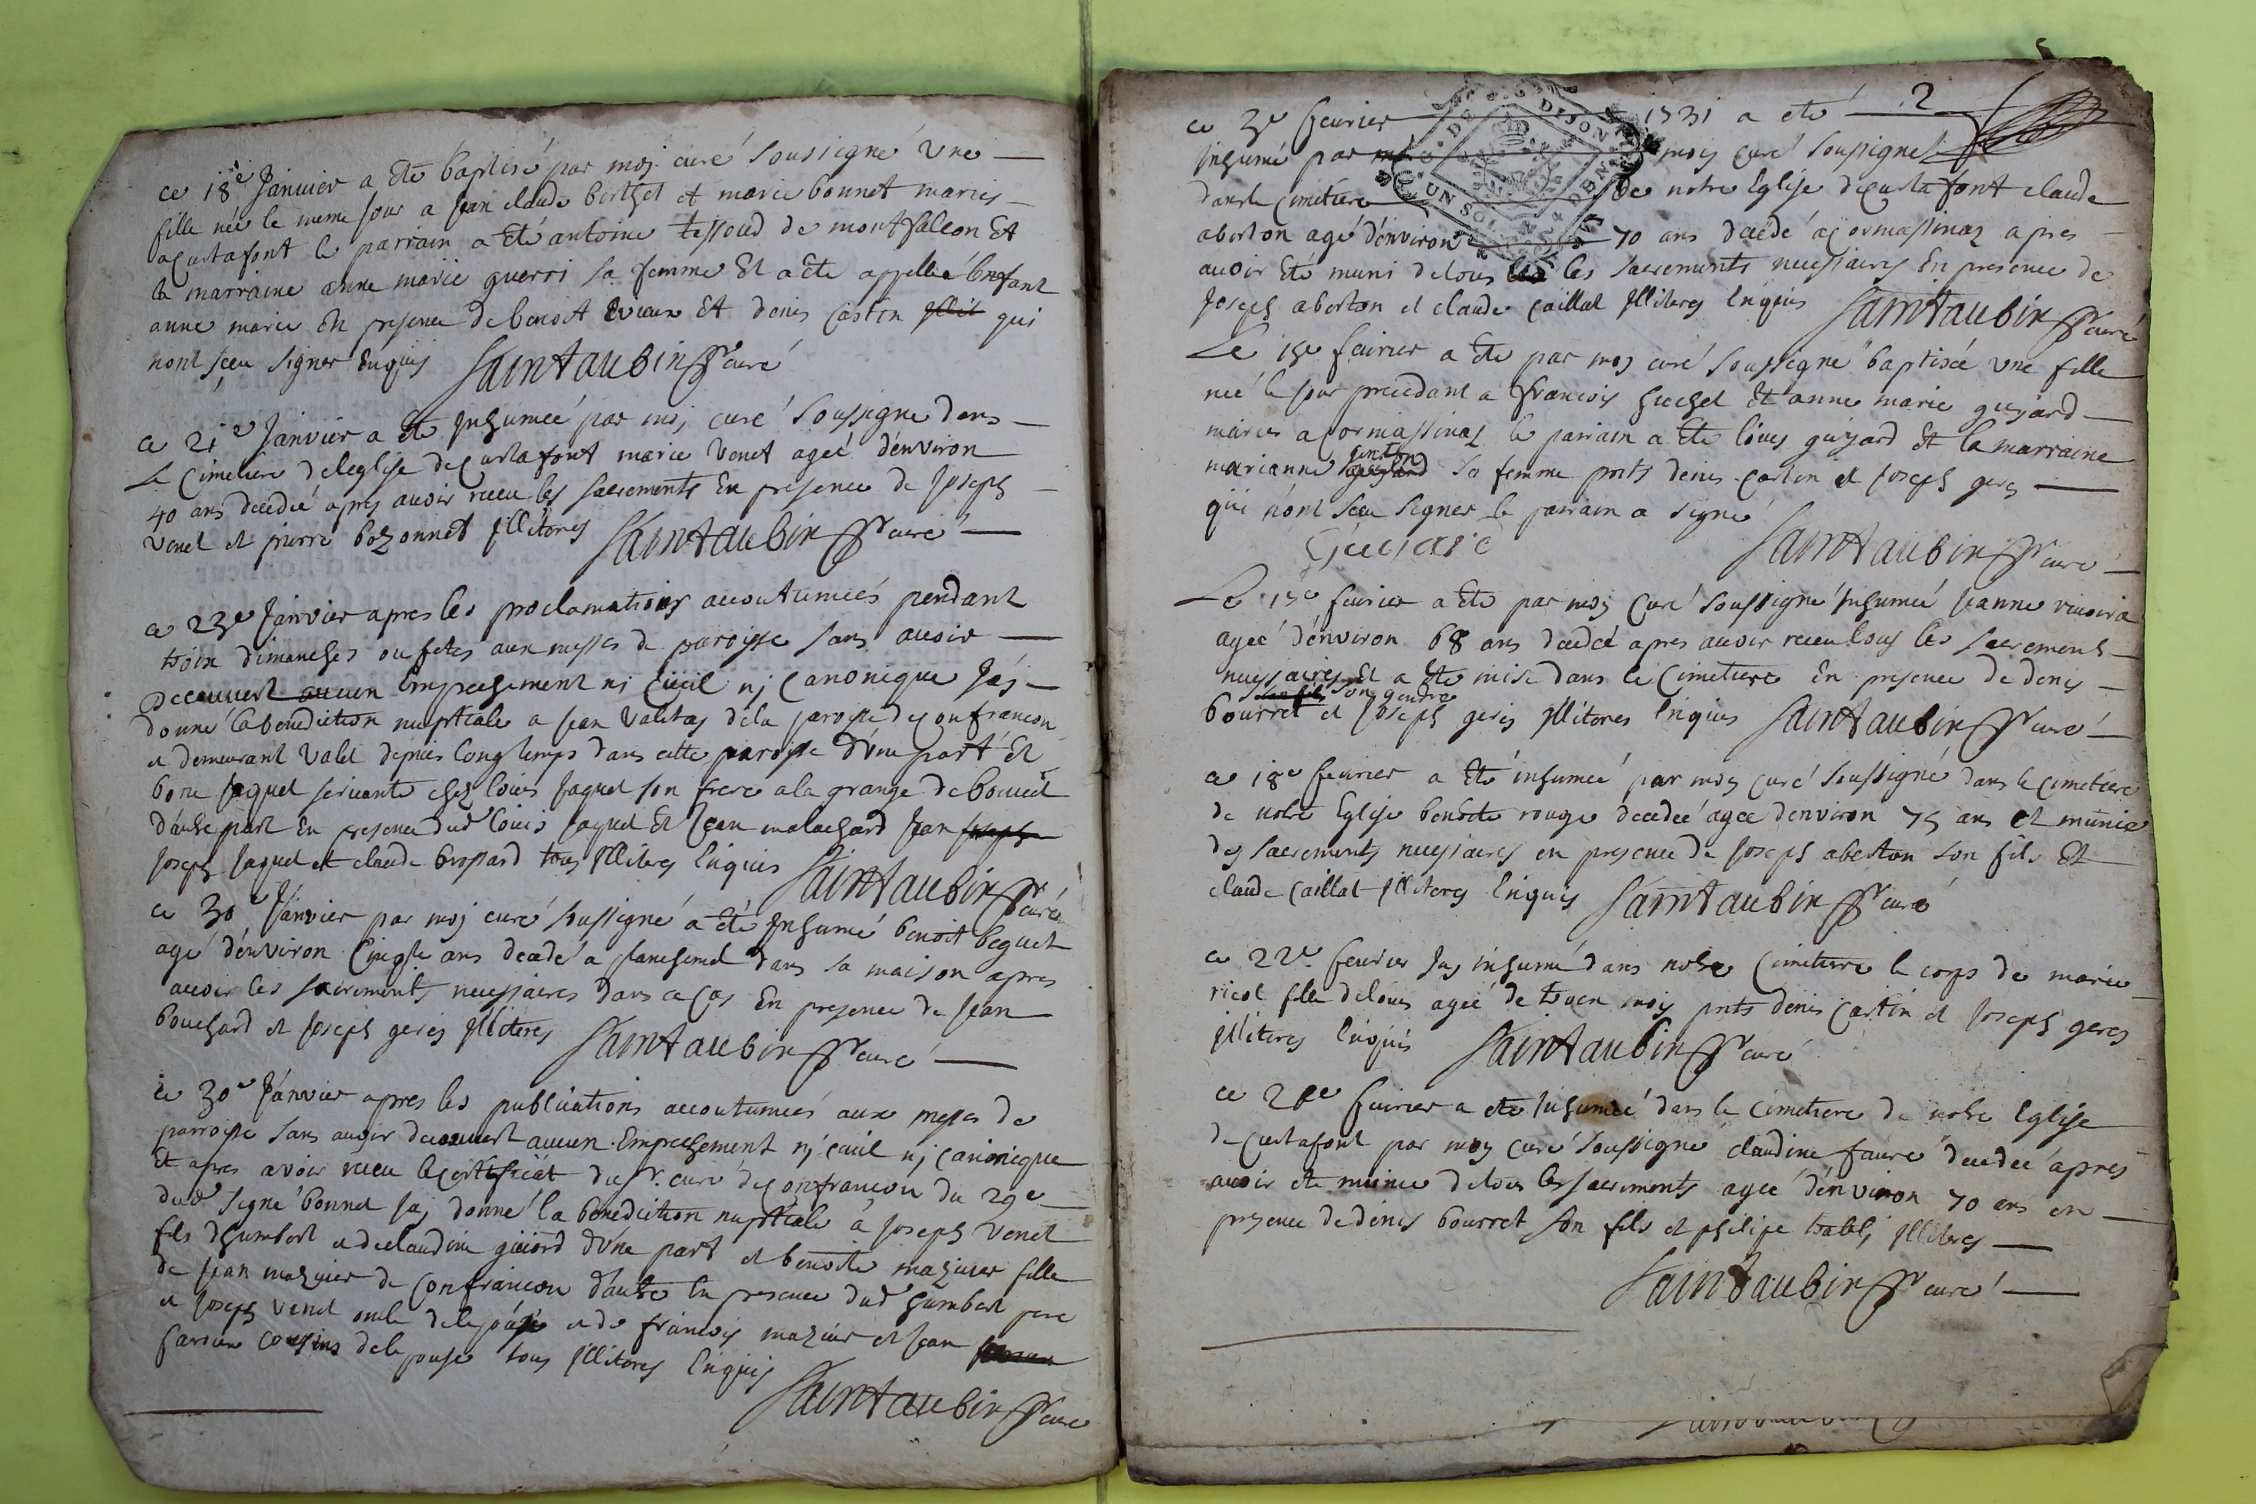 ce 18e Janvier a ete baptisé par moj curé soussigné une
fille née le meme jour a jean claude berthet et marie bonnet maries
a curtafont le parrain a été antoine tessoud de montfalcon et
la marraine anne marie guerri sa femme et a ete appellée l'enfant
anne marie en presence de benoit et denis castin qui
nont sceu signer enquis Saintaubin curé
ce 21e Janvier a ete inhumeé par moj curé soussigné dans
le Cimetiere de leglise de curtafont marie venet ageé d'environ
40 ans decedeé apres avoir receu les sacrements en presence de joseph
venet et pierre bozonnet illiteres Saintaubin curé
ce 23e Janvier apres les proclamations accoutumeés pendant
trois dimanches ou fetes aux messes de paroisse sans avoir
decouvert aucun empechement nj civil nj canonique j'aj
donné la benediction nuptiale a jean valetas de la paroisse de confrancon
et demeurant valet depuis longtemps dans cette paroisse d'une part et
bone jaquet servante chez louis jaquet son frere a la grange de
d'autre part en presence dud louis jaquet et jean malachard jean joseph
joseph jaquet et claude brossard tous illiteres enquis Saintaubin curé
ce 30e Janvier par moj curé soussigné a été inhumé benoit beguet
agé d'environ ans decedé a dans sa maison apres
avoir les sacrements necessaires dans ce cas en presence de jean
bouchard et joseph geres illiteres Saintaubin curé
ce 30e Janvier apres les publications accoutumeés aux messes de
parroisse sans avoir decouvert aucun empechement nj civil nj canonique
et apres avoir receu le certificat du sr. curé de confrancon du 29e
dud signé bonnet j'aj donné la benediction nuptiale a joseph venet
fils d'humbert et de claudine guiord d'une part et benoite mazuier fille
de jean mazuier de confrancon d'autre en presence dud humbert pere
et joseph venet oncle de lepoux et de francois mazuier et jean
cousins de lepouse tous illiteres enquis
Saintaubin curé
2
ce 3e fevrier 1731 a ete
inhumé par moj moy curé soussigné
dans le cimetiere de notre eglise de curtafont claude
aberton agé d'environ 70 ans decedé a cormassinaz apres
avoir eté muni de tous les sacrements necessaires en presence de
joseph aberton et claude caillat illiteres enquis Saintaubin curé
Le 15e fevrier a ete par moy curé soussigné baptiseé une fille
neé le jour precedant a francois hechet et anne marie guyard
maries a cormassinaz le parrain a ete louis guyard et la marraine
marianne sa femme pnts denis castin et joseph geres
qui n'ont sceu signer le parrain a signé
Guiard Saintaubin curé
Le 15e fevrier a ete par moy curé soussigné inhumeé jeanne
ageé d'environ 68 ans decedeé apres avoir receu tous les sacrements
necessaires et a ete mise dans le cimetiere en presence de denis
son gendre
bourret et joseph geres illiteres enquis Saintaubin curé
ce 18e fevrier a eté inhumeé par moy curé soussigné dans le cimetiere
de notre eglise benoite rouge decedeé ageé d'environ 75 ans et munie
des sacrements necessaires en presence de joseph aberton son fils et
claude caillat illiteres enquis Saintaubin curé
ce 22e fevrier j'ay inhumé dans notre cimetiere le corps de marie
ricol fille de louis ageé de mois pnts denis castin et joseph geres
illiteres enquis Saintaubin curé
ce fevrier a ete inhumeé dans le cimetiere de notre eglise
de curtafont par moy curé soussigné claudine faure decedeé apres
avoir ete munie de tous les sacrements ageé d'environ 70 ans en
presence de denis bourret son fils et philipe illiteres
Saintaubin curé